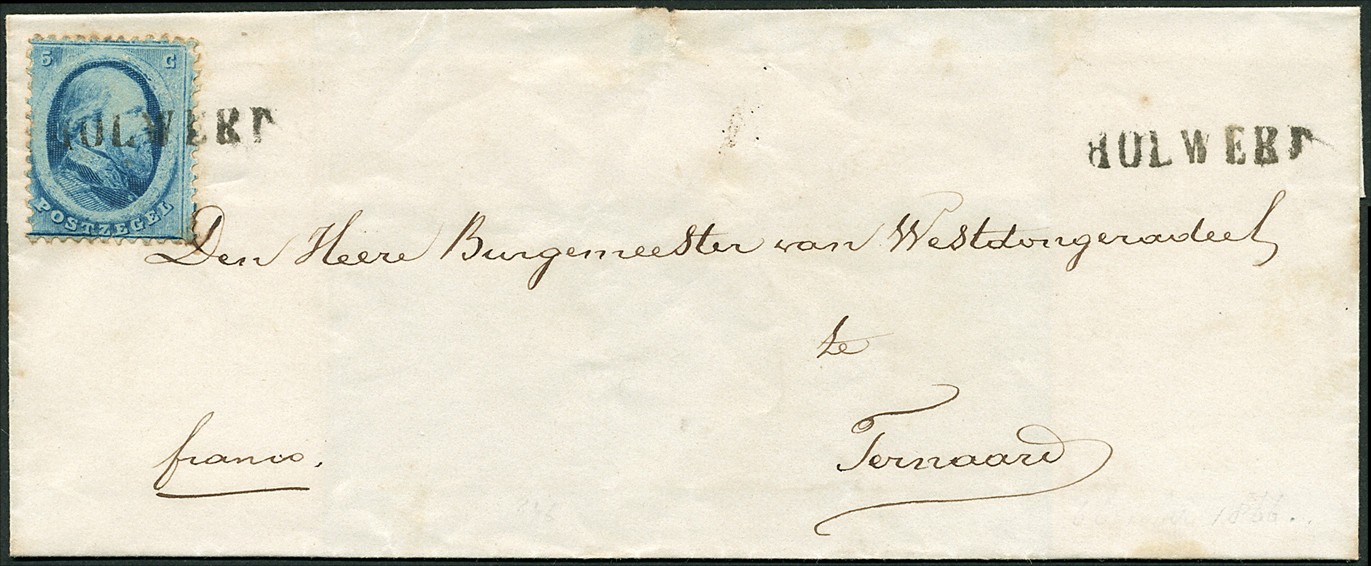 5 C
POSTZEGEL
HOLWERD
HOLWERD
Den Heere Burgemeester van Westdongeradeel
te
Ternaard
franco.